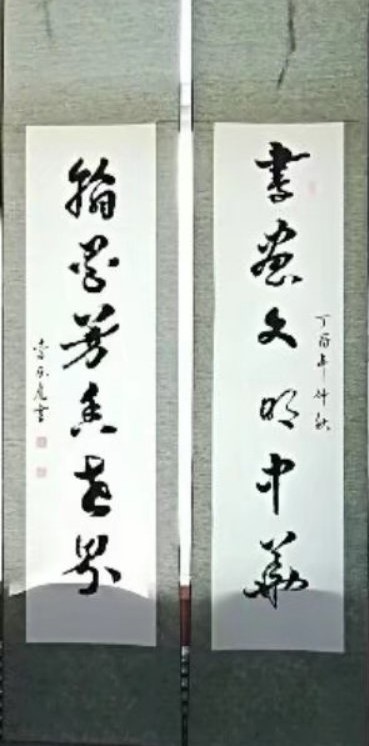 書畫文明中華
丁酉年仲秋
翰墨芳香世界